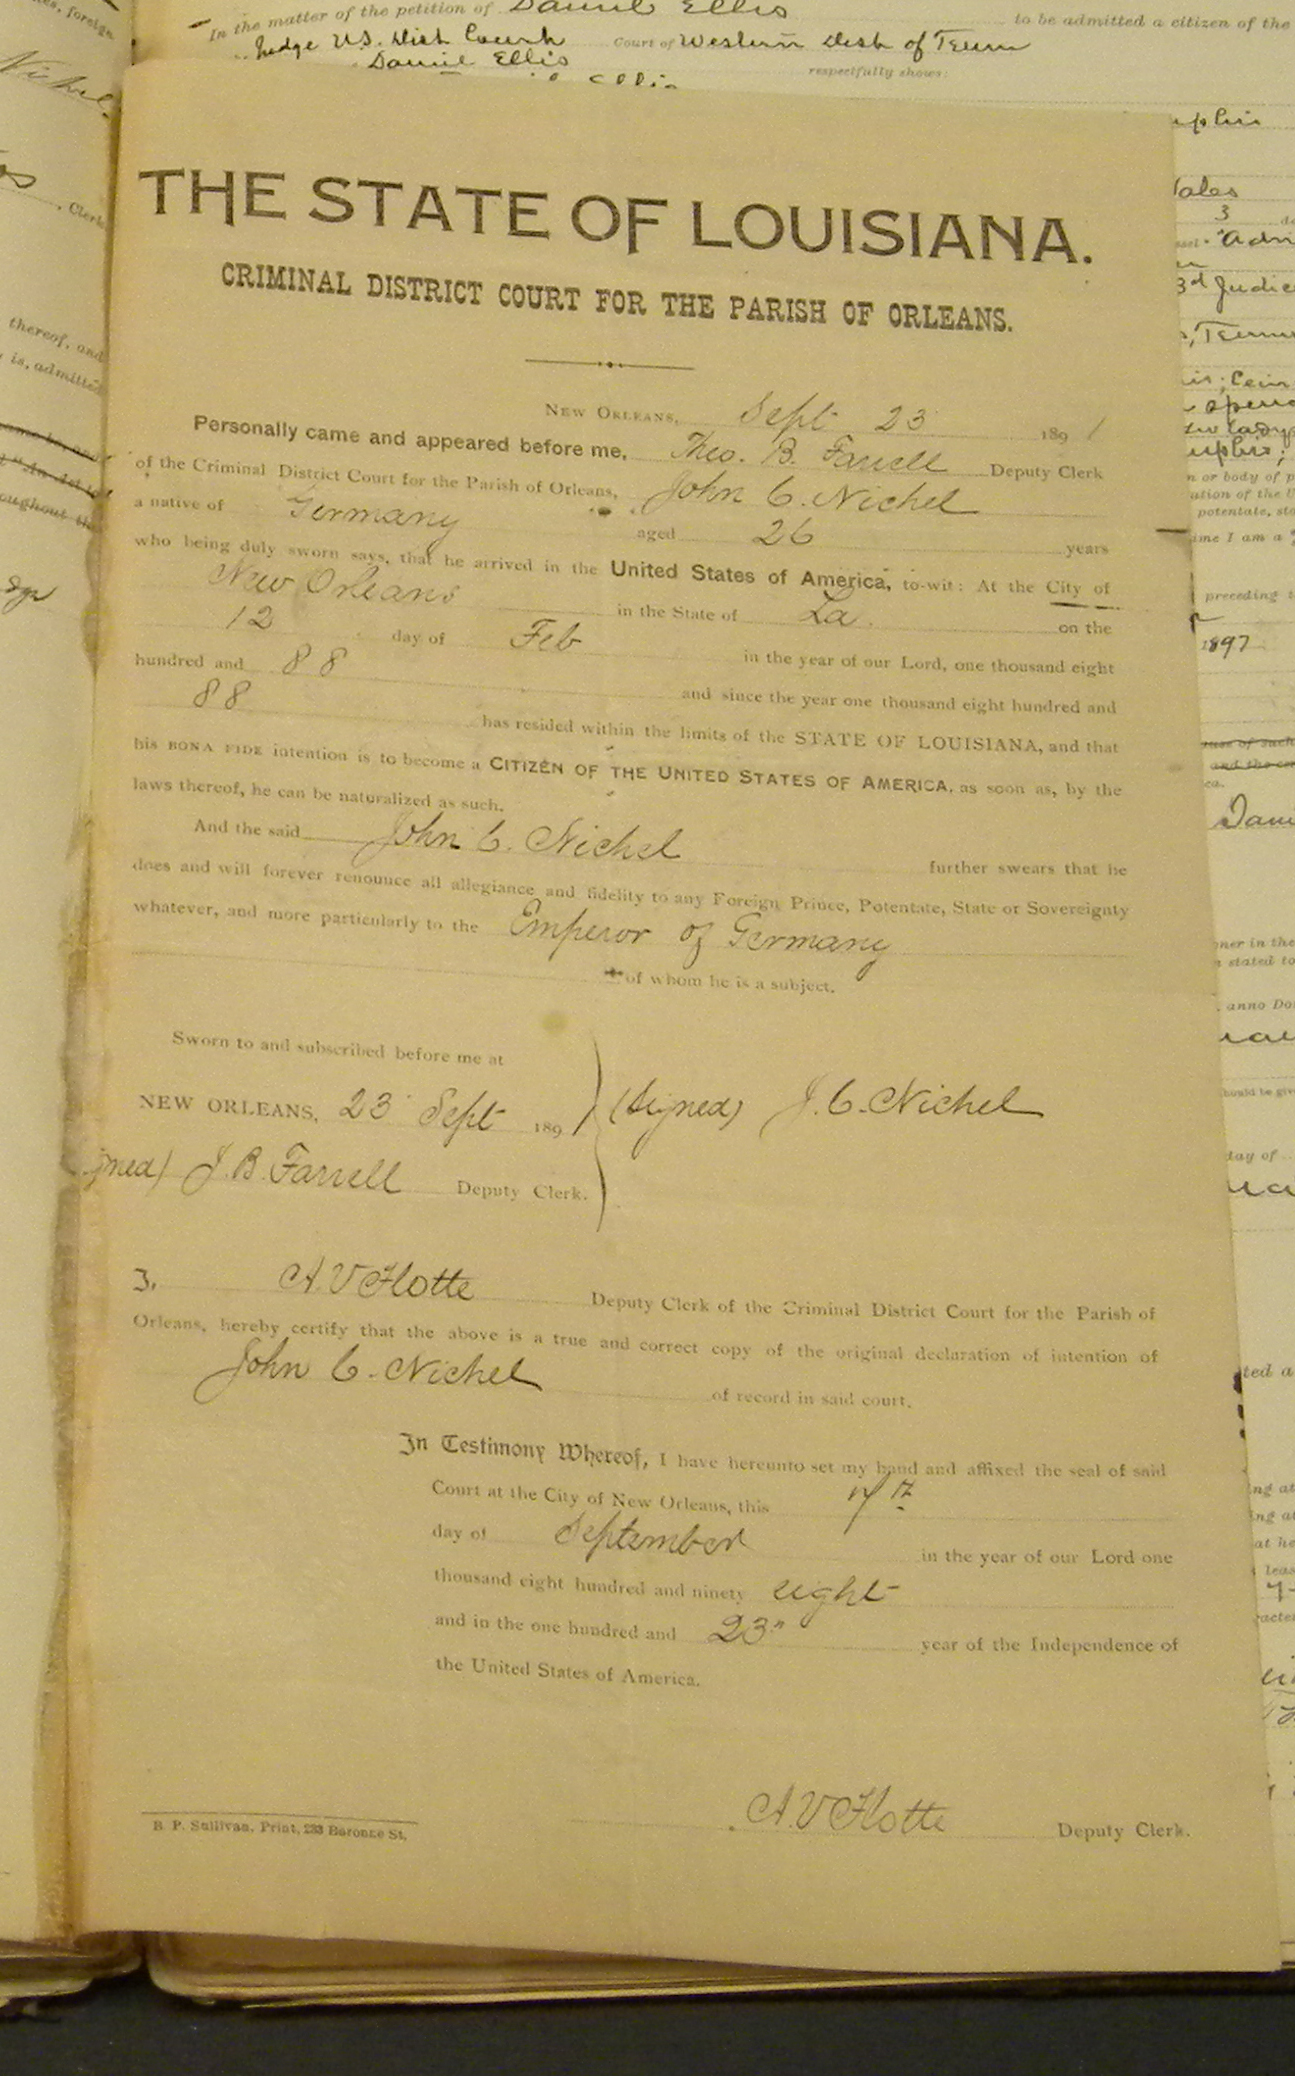 In the matter of the petition of Daniel Ellis to be admitted a citizen of the
Judge U.S. Dist Court Court of Western Dist of Tenn
Daniel Ellis respectfully shows:
THE STATE OF LOUISIANA.
CRIMINAL DISTRICT COURT FOR THE PARISH OF ORLEANS.
NEW ORLEANS, Sept 23 1891
Personally came and appeared before me, Theo. B. Farrell Deputy Clerk
of the Criminal District Court for the Parish of Orleans, John C. Nichel
a native of Germany aged 26 years
who being duly sworn says, that he arrived in the United States of America, to-wit: At the City of
New Orleans in the State of La. on the
12 day of Feb in the year of our Lord, one thousand eight
hundred and 88 and since the year one thousand eight hundred and
88 has resided within the limits of the STATE OF LOUISIANA, and that
his BONA FIDE intention is to become a CITIZEN OF THE UNITED STATES OF AMERICA, as soon as, by the
laws thereof, he can be naturalized as such.
And the said John C. Nichel further swears that he
does and will forever renounce all allegiance and fidelity to any Foreign Prince, Potentate, State or Sovereignty
whatever, and more particularly to the Emperor of Germany
of whom he is a subject.
Sworn to and subscribed before me at
NEW ORLEANS, 23 Sept 1891 (Signed) J. C. Nichel
J. B. Farrell Deputy Clerk.
I, A. V. Flotte Deputy Clerk of the Criminal District Court for the Parish of
Orleans, hereby certify that the above is a true and correct copy of the original declaration of intention of
John C. Nichel of record in said court.
In Testimony Whereof, I have hereunto set my hand and affixed the seal of said
Court at the City of New Orleans, this
day of September in the year of our Lord one
thousand eight hundred and ninety eight
and in the one hundred and 23" year of the Independence of
the United States of America.
A. V. Flotte Deputy Clerk.
B. P. Sullivan, Print, 233 Baronne St.